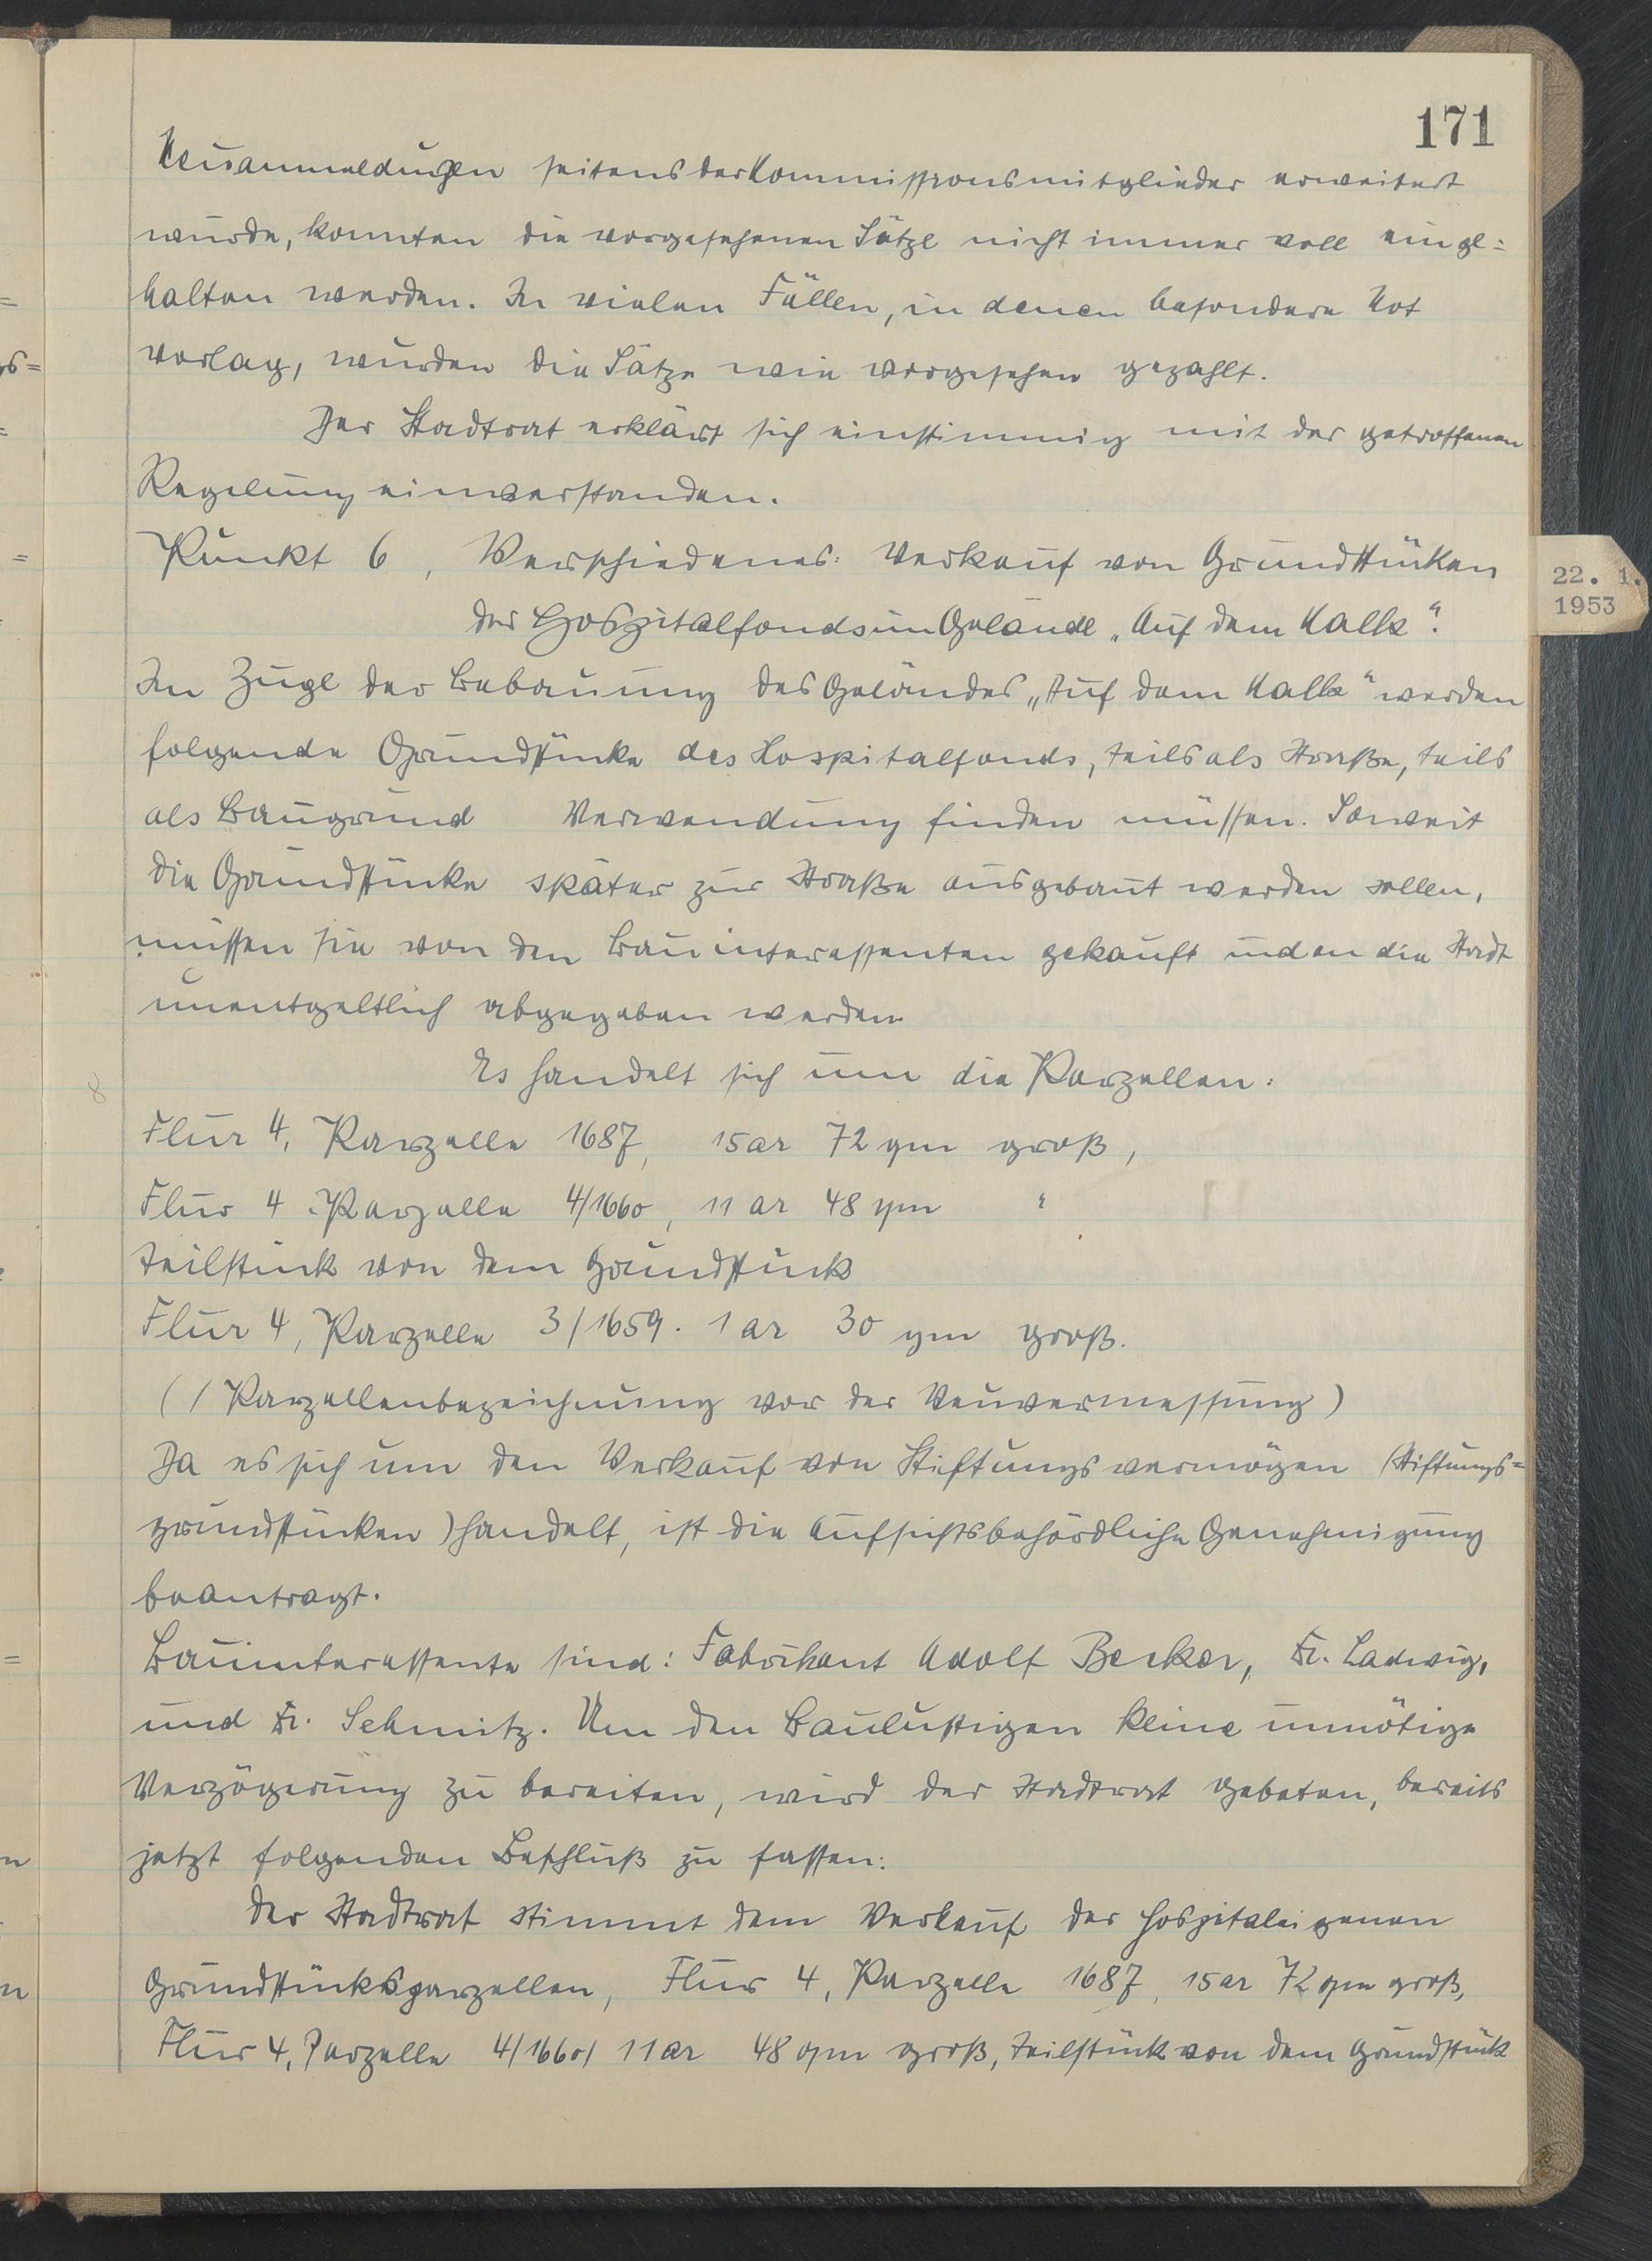 171
Neuanmeldungen seitens der Kommissionsmitglieder erweitert
wurde, konnten die vorgesehenen Sätze nicht immer voll einge=
halten werden. In vielen Fällen, in denen besondere Not
vorlag, wurden die Sätze wie vorgesehen gezahlt.
Der Stadtrat erklärt sich einstimmig mit der getroffenen
Regelung einverstanden.
Punkt 6, Verschiedenes: Verkauf von Grundstücken
des Hospitalfonds im Gelände „Auf dem Kalk".
22. 1.
1953
Im Zuge der Bebauung des Geländes „Auf dem Kalk" werden
folgende Grundstücke des Hospitalfonds, teils als Straße, teils
als Baugrund Verwendung finden müssen. Soweit
die Grundstücke später zur Straße ausgebaut werden sollen,
müssen sie von den Bauinteressenten gekauft und an die Stadt
unentgeltlich abgegeben werden
Es handelt sich um die Parzellen:
Flur 4, Parzelle 1687, 15 ar 72 qm groß,
Flur 4 Parzelle 4/1660, 11 ar 48 qm "
Teilstück von dem Grundstück
Flur 4, Parzelle 3/1659. 1 ar 30 qm groß.
(/ Parzellenbezeichnung vor der Neuvermessung)
Da es sich um den Verkauf von Stiftungsvermögen (Stiftungs=
grundstücken) handelt, ist die Aufsichtsbehördliche Genehmigung
beantragt.
Bauinteressente sind: Fabrikant Adolf Becker, Fr. Ladwig,
und Fr. Schmitz. Um den Baulustigen keine unnötige
Verzögerung zu bereiten, wird der Stadtrat gebeten, bereits
jetzt folgenden Beschluß zu fassen:
Der Stadtrat stimmt dem Verkauf der hospitaleigenen
Grundstücksparzellen, Flur 4, Parzelle 1687, 15 ar 72 qm groß,
Flur 4, Parzelle 4/1660/ 11 ar 48 qm groß, Teilstück von dem Grundstück